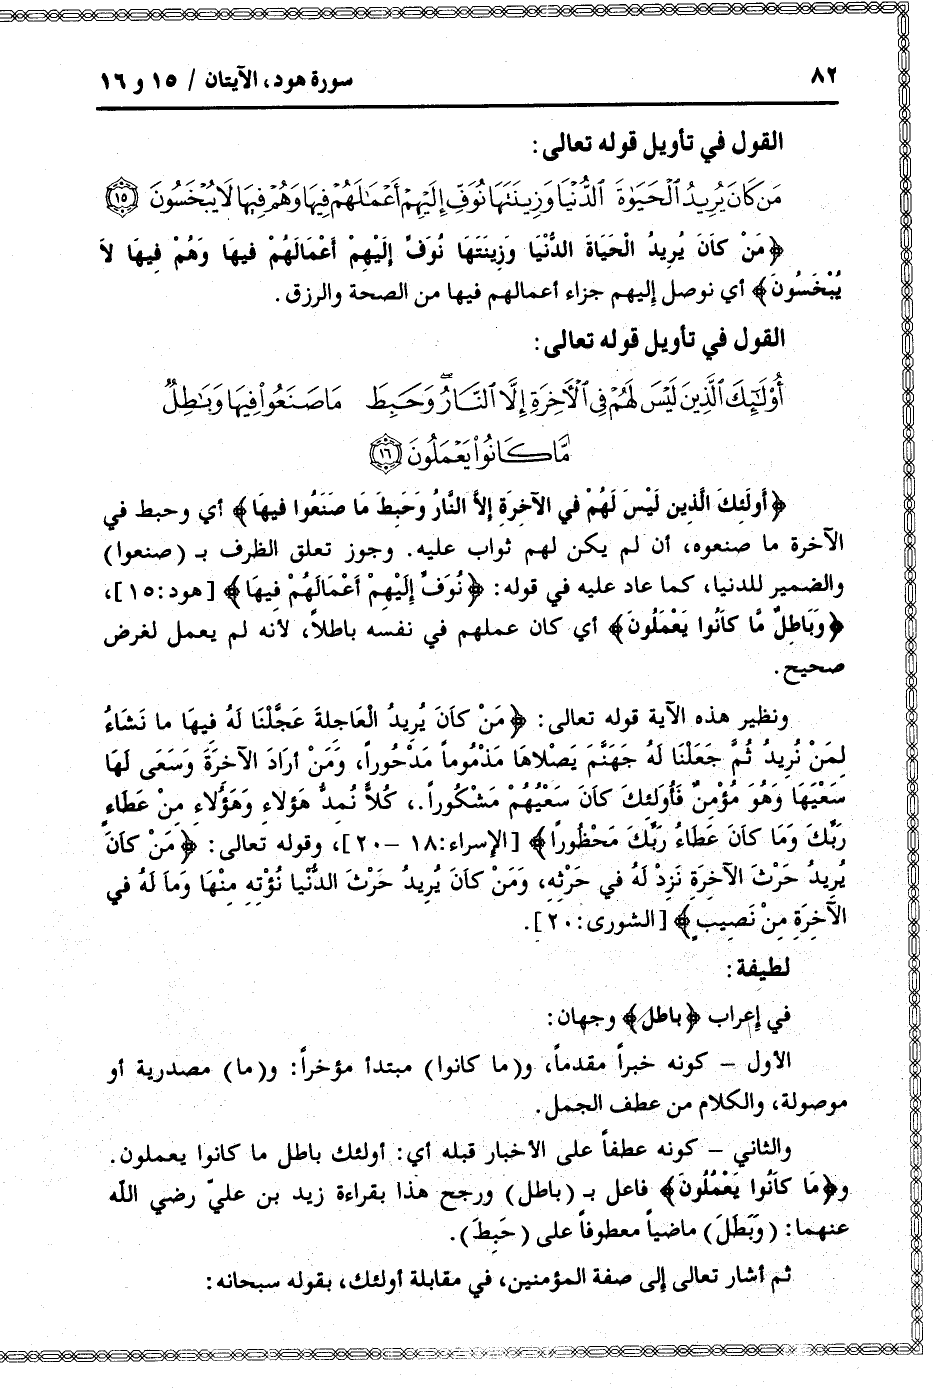 ٨٢
سورة هود، الآيتان / ١٥ و ١٦
القول في تأويل قوله تعالى:
مَن كَانَ يُرِيدُ ٱلْحَيَوٰةَ ٱلدُّنْيَا وَزِينَتَهَا نُوَفِّ إِلَيْهِمْ أَعْمَـٰلَهُمْ فِيهَا وَهُمْ فِيهَا لَا يُبْخَسُونَ ۝١٥
﴿مَنْ كَانَ يُرِيدُ الْحَيَاةَ الدُّنْيَا وَزِينَتَهَا نُوَفِّ إِلَيْهِمْ أَعْمَالَهُمْ فِيهَا وَهُمْ فِيهَا لاَ
يُبْخَسُونَ﴾ أي نوصل إليهم جزاء أعمالهم فيها من الصحة والرزق.
القول في تأويل قوله تعالى:
أُوْلَـٰٓئِكَ ٱلَّذِينَ لَيْسَ لَهُمْ فِى ٱلْأَخِرَةِ إِلَّا ٱلنَّارُ ۖ وَحَبِطَ مَا صَنَعُوا۟ فِيهَا وَبَـٰطِلٌ
مَّا كَانُوا۟ يَعْمَلُونَ ۝١٦
﴿أُولَئِكَ الَّذِين لَيْسَ لَهُمْ في الآخِرَةِ إِلاَّ النَّارُ وَحَبِطَ مَا صَنَعُوا فِيهَا﴾ أي وحبط في
الآخرة ما صنعوه، أن لم يكن لهم ثواب عليه. وجوز تعلق الظرف بـ (صنعوا)
والضمير للدنيا، كما عاد عليه في قوله: ﴿نُوَفِّ إِلَيْهِمْ أَعْمَالَهُمْ فِيهَا﴾ [هود:١٥]،
﴿وَبَاطِلٌ مَّا كَانُوا يَعْمَلُونَ﴾ أي كان عملهم في نفسه باطلاً، لأنه لم يعمل لغرض
صحيح.
ونظير هذه الآية قوله تعالى: ﴿مَنْ كَانَ يُرِيدُ الْعَاجِلَةَ عَجَّلْنَا لَهُ فِيهَا ما نَشَاءُ
لِمَنْ نُرِيدُ ثُمَّ جَعَلْنَا لَهُ جَهَنَّمَ يَصْلاهَا مَذْمُوماً مَدْحُوراً، وَمَنْ أرَادَ الآخرَةَ وَسَعَى لَهَا
سَعْيَهَا وَهُوَ مُؤْمِنٌ فَأُولَئِكَ كَانَ سَعْيُهُمْ مَشْكُوراً.، كُلاًّ نُمِدُّ هَؤلاءِ وَهَؤُلاءِ مِنْ عَطَاءِ
رَبِّكَ وَمَا كَانَ عَطَاءُ رَبِّكَ مَحْظُوراً﴾ [الإسراء:١٨ -٢٠]، وقوله تعالى: ﴿مَنْ كَانَ
يُرِيدُ حَرْثَ الآخِرَةِ نَزِدْ لَهُ في حَرْثِهِ، وَمَنْ كَانَ يُرِيدُ حَرْثَ الدُّنْيا نُؤْتِه مِنْهَا وَمَا لَهُ في
الآخِرَةِ مِنْ نَصِيبٍ﴾ [الشورى:٢٠].
لطيفة:
في إعراب ﴿باطل﴾ وجهان:
الأول – كونه خبراً مقدماً، و(ما كانوا) مبتدأ مؤخراً: و(ما) مصدرية أو
موصولة، والكلام من عطف الجمل.
والثاني – كونه عطفاً على الأخبار قبله أي: أولئك باطل ما كانوا يعملون.
و﴿مَا كَانُوا يَعْمُلُونَ﴾ فاعل بـ (باطل) ورجح هذا بقراءة زيد بن عليّ رضي اللّه
عنهما: (وَبَطَلَ) ماضياً معطوفاً على (حَبِطَ).
ثم أشار تعالى إلى صفة المؤمنين، في مقابلة أولئك، بقوله سبحانه: